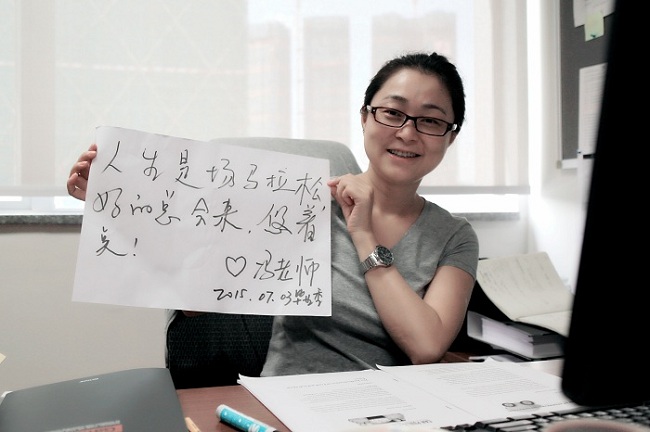 人生是场马拉松
好的总会来,悠着
点!
♡冯老师
2015.07.03毕业季